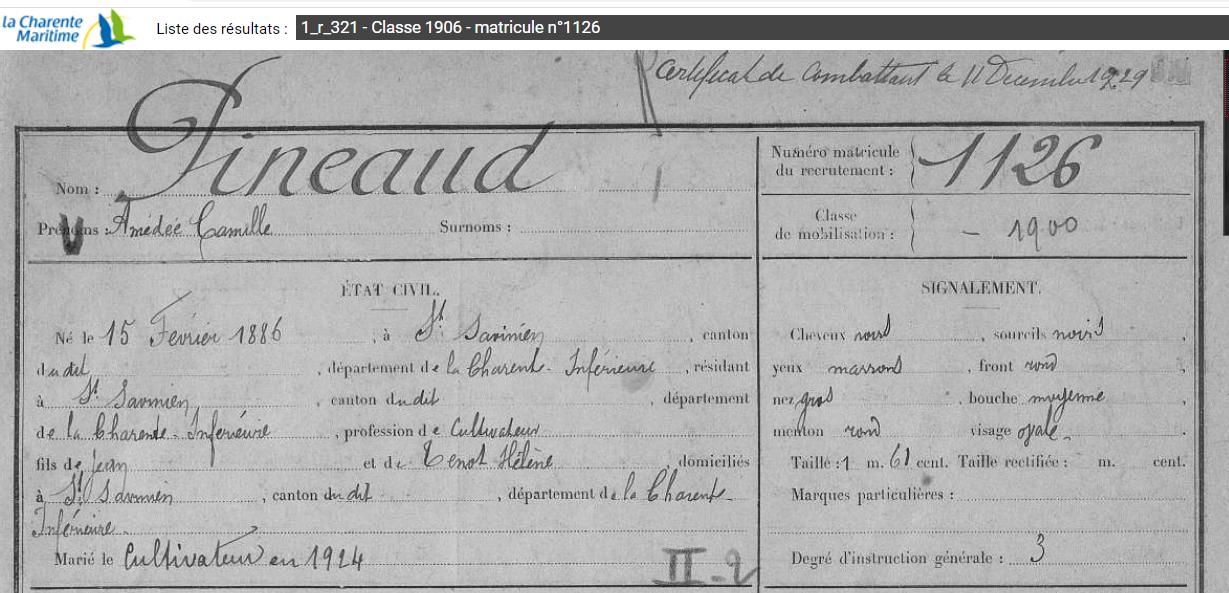 la Charente
Maritime
Liste des résultats : 1_r_321 - Classe 1906 - matricule n°1126
Certificat de Combattant le 11 Décembre 1929
Nom : Pineaud
Numéro matricule
du recrutement : 1126
Prénoms : Amédée Camille Surnoms :
Classe
de mobilisation : - 1900
ÉTAT CIVIL.
Né le 15 Février 1886, à St Savinien, canton
dudit, département de la Charente-Inférieure, résidant
à St Savinien, canton dudit, département
de la Charente-Inférieure, profession de Cultivateur
fils de Jean et de Tenot Hélène, domiciliés
à St Savinien, canton dudit, département de la Charente
Inférieure.
Marié le Cultivateur en 1924
II-2
SIGNALEMENT.
Cheveux noirs, sourcils noirs,
yeux marrons, front rond,
nez gros, bouche moyenne,
menton rond visage ovale.
Taille : 1 m. 61 cent. Taille rectifiée : m. cent.
Marques particulières :
Degré d'instruction générale : 3